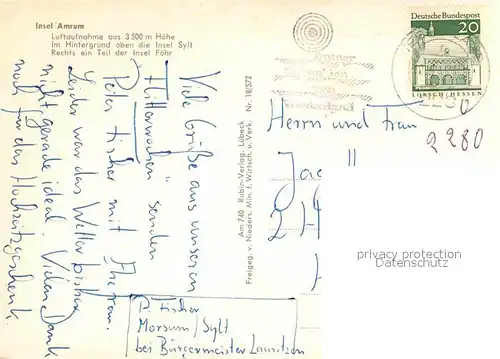 Insel Amrum
Luftaufnahme aus 3500 m Höhe
Im Hintergrund oben die Insel Sylt
Rechts ein Teil der Insel Föhr
Viele Grüße aus unseren
Flitterwochen senden
Peter Fischer mit Ehefrau.
Leider war das Wetter bisher
nicht gerade ideal. Vielen Dank
noch für das Hochzeitsgeschenk
P. Fischer
Morsum/Sylt
bei Bürgermeister Lauritzen
Am 740 Rubin-Verlag, Lübeck Nr. 18J572
Freigeg. v. Nieders. Min. f. Wirtsch. u. Verk.
Deutsche Bundespost
20
LORSCH/HESSEN
2280
Herrn und Frau
Jac
24
privacy protection
Datenschutz